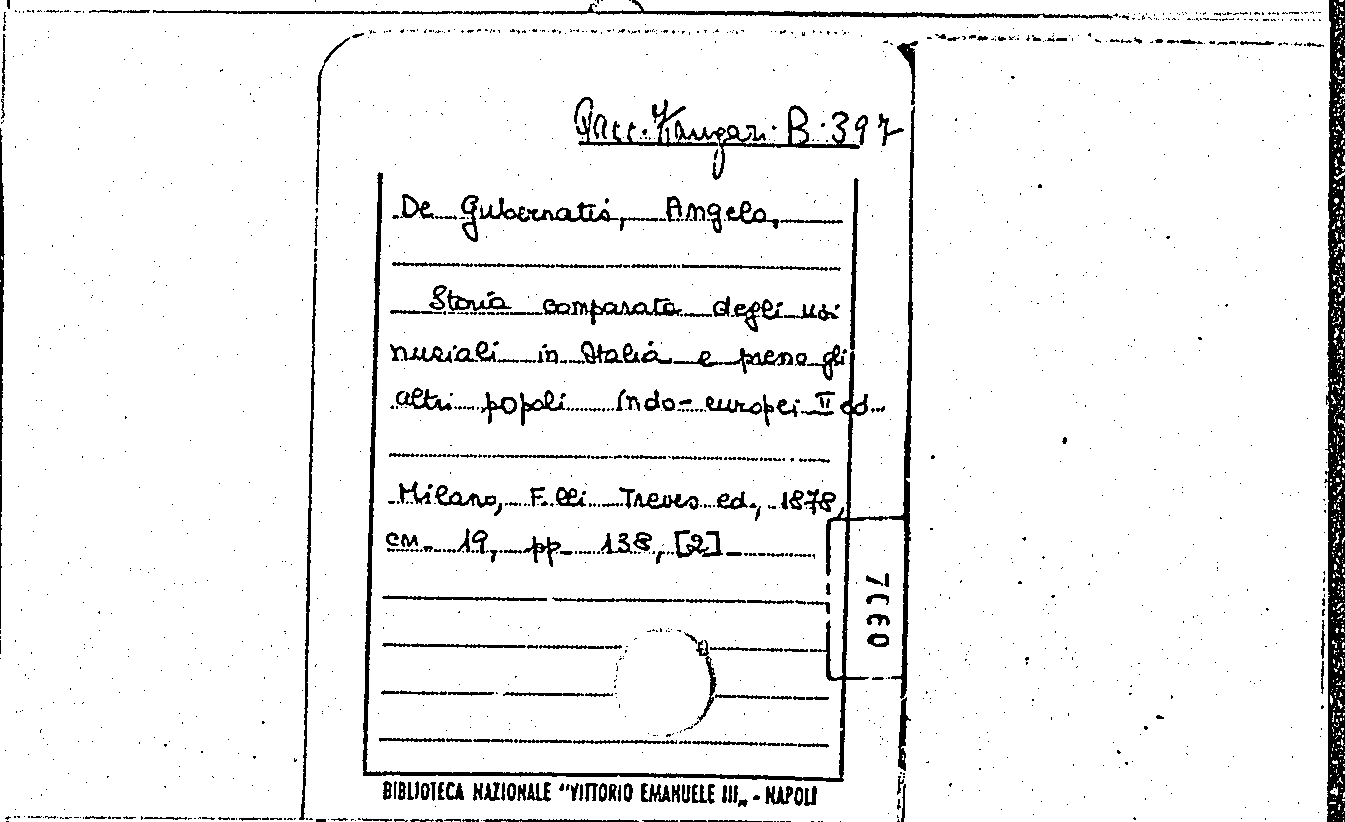 Racc. Zangari. B. 397
De Gubernatis, Angelo,
Storia comparata degli usi
nuziali in Italia e presso gli
altri popoli indo-europei II ed.
Milano, F.lli Treves ed., 1878,
cm. 19, pp. 138, [2]
BIBLIOTECA NAZIONALE "VITTORIO EMANUELE III„ - NAPOLI